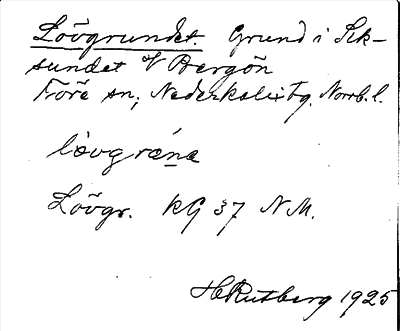 Lövgrundet. Grund i Sik-
sundet V Bergön
Töre sn, Nederkalix tg. Norrb. l.
lòvgrǽna
Lövgr. KG 37 NM.
H Rutberg 1925